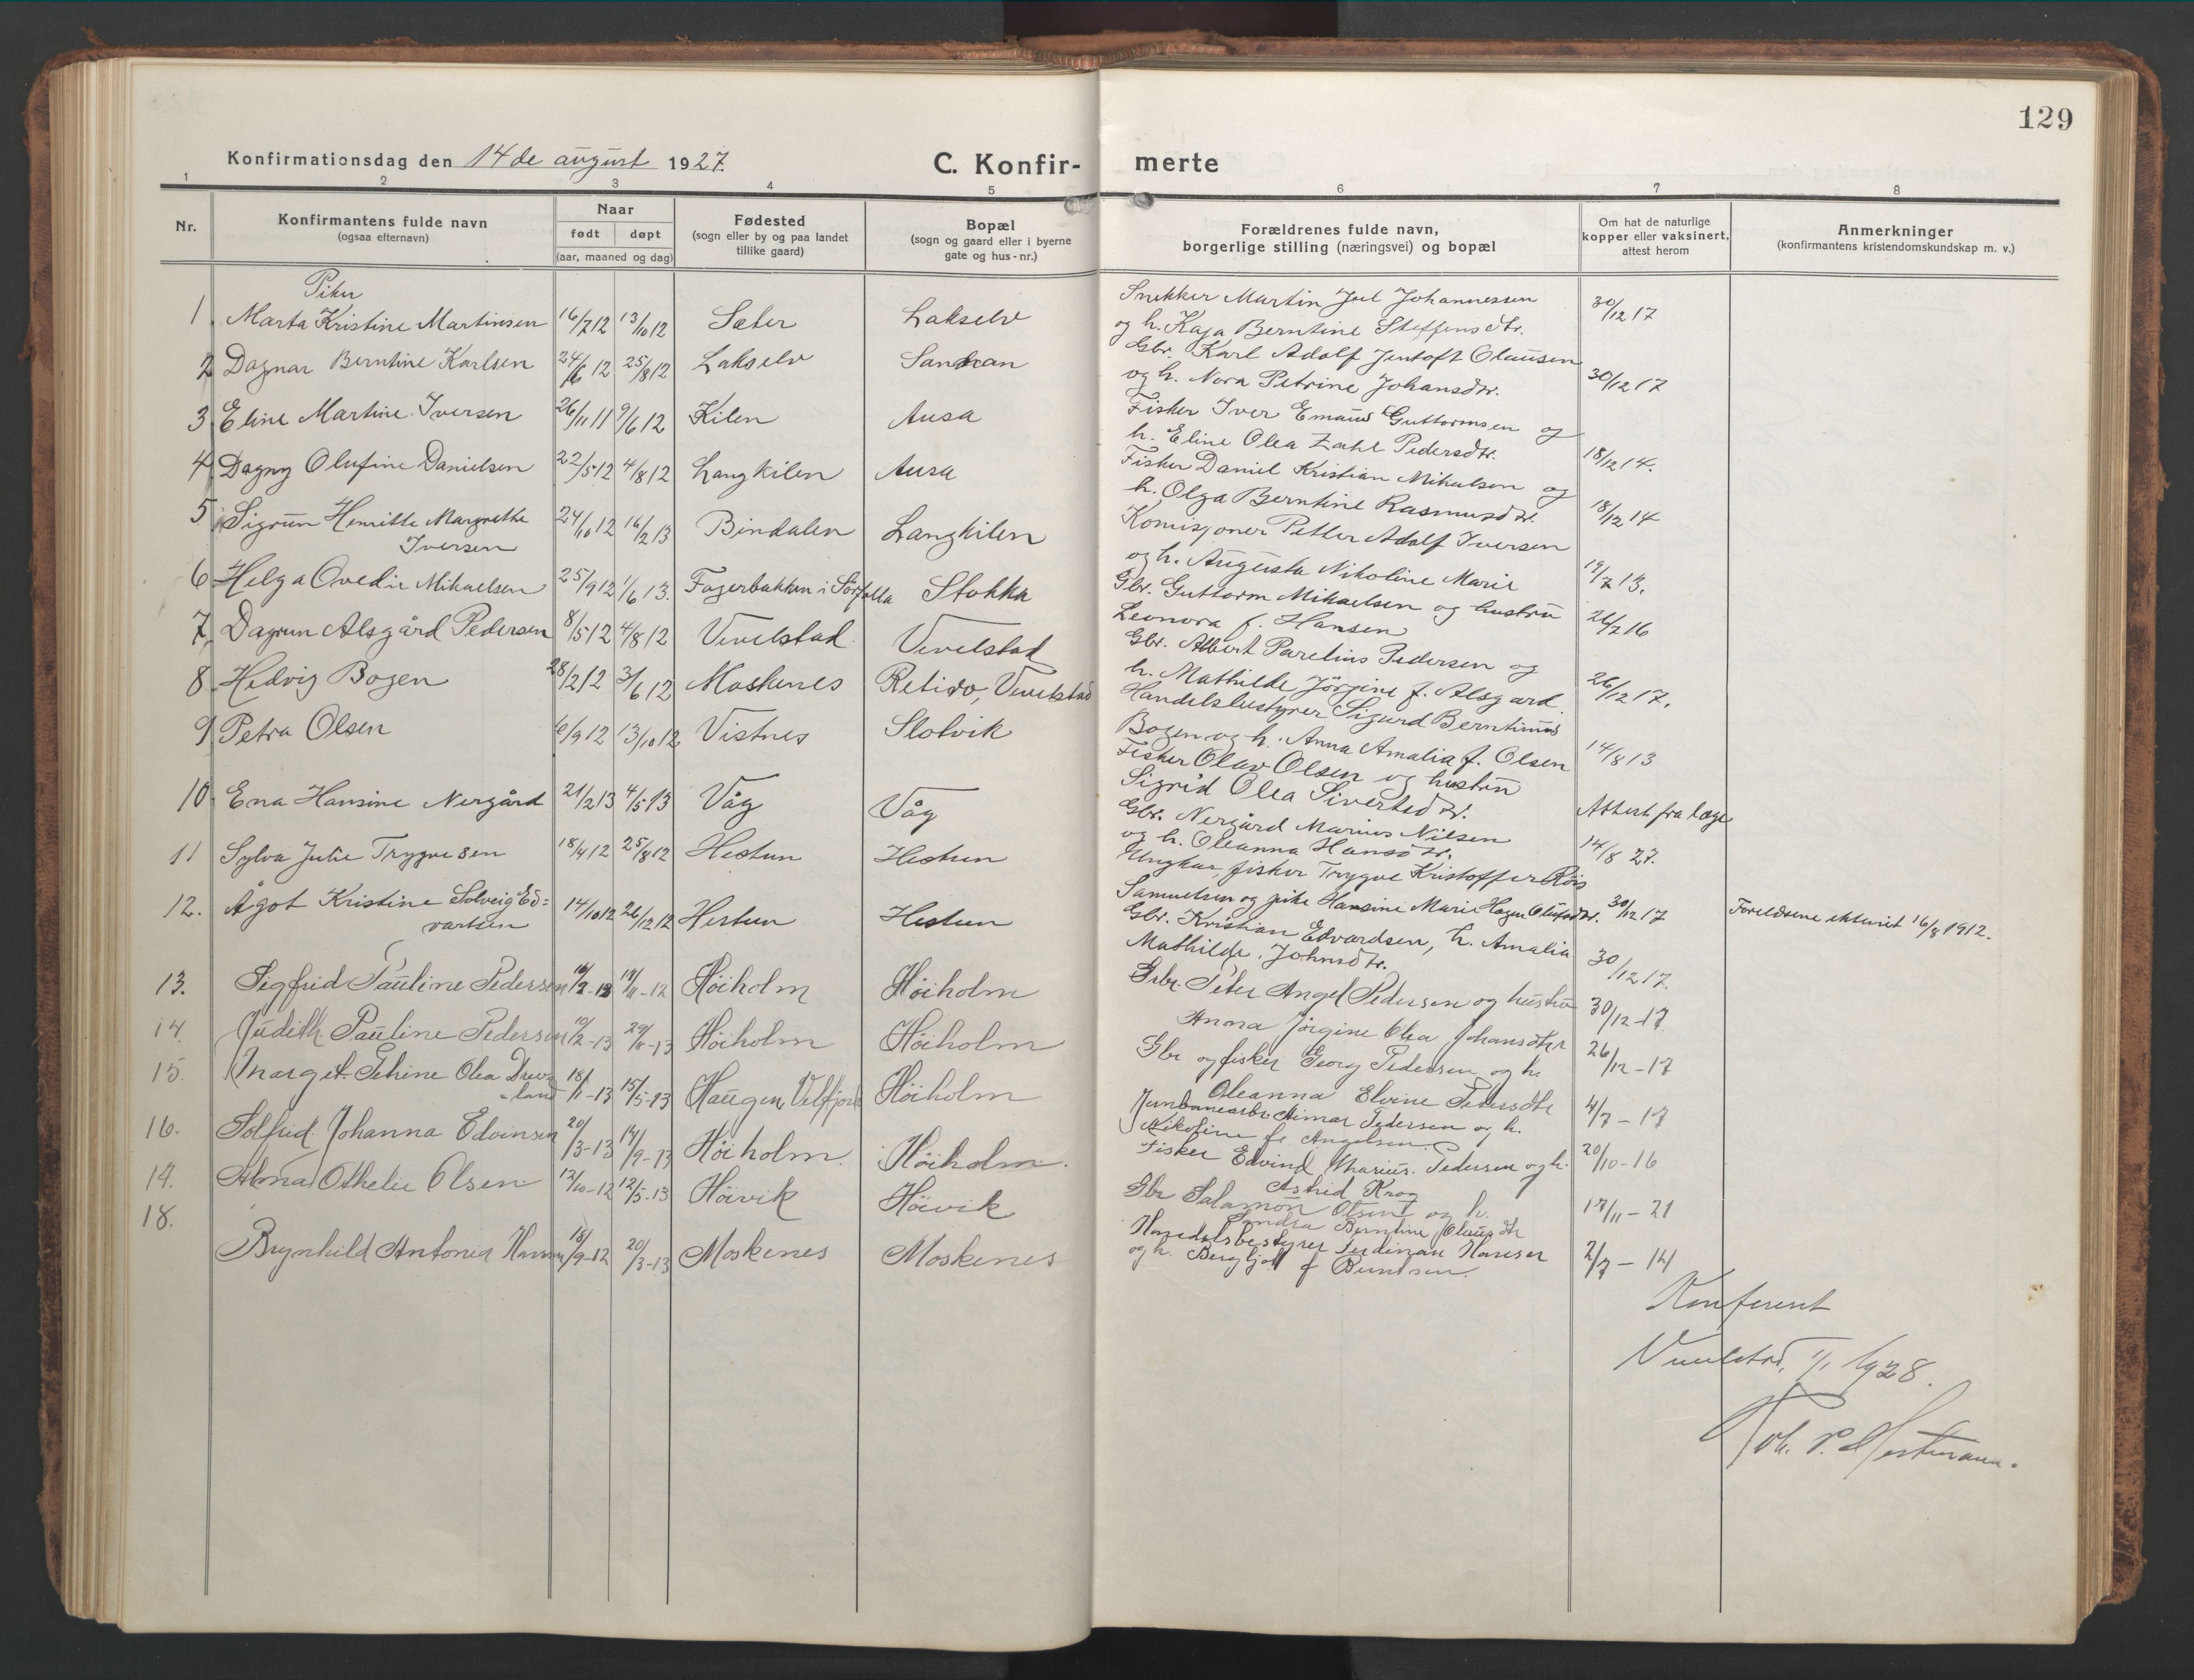 129
Konfirmationsdag den 14de august 1927. C. Konfirmerte
1 2 3 4 5 6 7 8
Nr. Konfirmantens fulde navn (ogsaa efternavn) Naar født døpt (aar, maaned og dag) Fødested (sogn eller by og paa landet tillike gaard) Bopæl (sogn og gaard eller i byerne gate og hus-nr.) Forældrenes fulde navn, borgerlige stilling (næringsvei) og bopæl Om hat de naturlige kopper eller vaksinert, attest herom Anmerkninger (konfirmantens kristendomskundskap m. v.)
Piker
1 Marta Kristine Martinsen 16/7 12 13/10 12 Sæter Lakselv Snekker Martin Juel Johannessen og h. Kaja Berntine Steffensdtr. 30/12 17
2 Dagnar Berntine Karlsen 24/6 12 25/8 12 Lakselv Gbr. Karl Adolf Jentoft Olausen og h. Nora Petrine Johansdtr. 30/12 17
3 Eline Martine Iversen 26/11 11 9/6 12 Kilen Ausa Fisker Iver Emaus Guttormsen og h. Eline Olea Zahl Pedersdtr. 18/12 14.
4 Dagny Olufine Danielsen 22/5 12 4/8 12 Langkilen Ausa Fisker Daniel Kristian Mikalsen og h. Olga Berntine Rasmusdtr. 18/12 14
5 Sigrun Henritte Margrethe Iversen 24/10 12 16/2 13 Bindalen Langkilen Komisjoner Petter Adolf Iversen og h. Augusta Nikoline Marie 19/7 13.
6 Helga Ovedie Mikaelsen 25/9 12 1/6 13. Fagerbakken i Sörfolla Stokka Gbr. Guttorm Mikaelsen og hustru Leonora f. Hansen 26/7 16
7 Dagrun Alsgård Pedersen 8/5 12 4/8 12 Vevelstad Vevelstad Gbr. Albert Parelius Pedersen og h. Mathilde Jörgine f. Alsgard. 26/12 17.
8 Hedvig Bogen 28/2 12 3/6 12 Moskenes Vevelstad Handelsbestyrer Sigurd Berntinus Bogen og h. Anna Amalia f. Olsen 14/8 13
9 Petra Olsen 6/9 12 13/10 12 Vistnes Slotvik Fisker Olav Olsen og hustru Sigrid Olea Sivertsdtr. Attest fra læge
10 Ena Hansine Nergård 21/2 13 4/5 13 Våg Våg Gbr. Nergård Marius Nilsen og h. Oleanna Hansdtr. 14/8 27.
11 Sylva Julie Trygvesen 18/4 12 25/8 12 Hestun Hestun Ungkar, fisker Trygve Kristoffer Röis Samuelsen og pike Hansine Marie Hagen Olufsdtr. 30/12 17 Foreldrene ekteviet 16/8 1912.
12. Ågot Kristine Solveig Edvartsen 14/10 12 26/12 12 Hestun Hestun Gbr. Kristian Edvardsen, h. Amalia Mathilde Johnsdtr. 30/12 17.
13. Sigfrid Pauline Pedersen Höiholm Höiholm Grbr. Peter Angel Pedersen og hustru Anna Jörgine Olea Johansdtr 30/12-17.
14. Judith Pauline Pedersen 10/2-13 Höiholm Höiholm Gbr og fisker Georg Pedersen og h. Oleanna Elvine Petersdtr 26/12-17
15. Margit Olea 18/1-13 15/5-13 Haugen Velfjord Höiholm Jernbanearb. Pedersen og h. Nikoline f. Angelsen 4/7-17
16. Solfrid Johanna Edvinsen 20/3-13 14/9-13 Höiholm. Höiholm. Fisker Edvind Marius Pedersen og h. Astrid Krog 20/10-16
17. Alma Othelie Olsen 12/10-12 12/5-13 Höivik Höivik Gbr Salamon Olsen og h. Sandra Berntine Olausdtr 17/11-21
18. Brynhild Antonia Hansen 18/9-12 20/3-13 Moskenes Moskenes Handelsbestyrer Ferdinan Hansen og h. Bergljot f Berntsen. 2/7-14
Konferert
Vevelstad, 1/1 1928.
Joh. P.